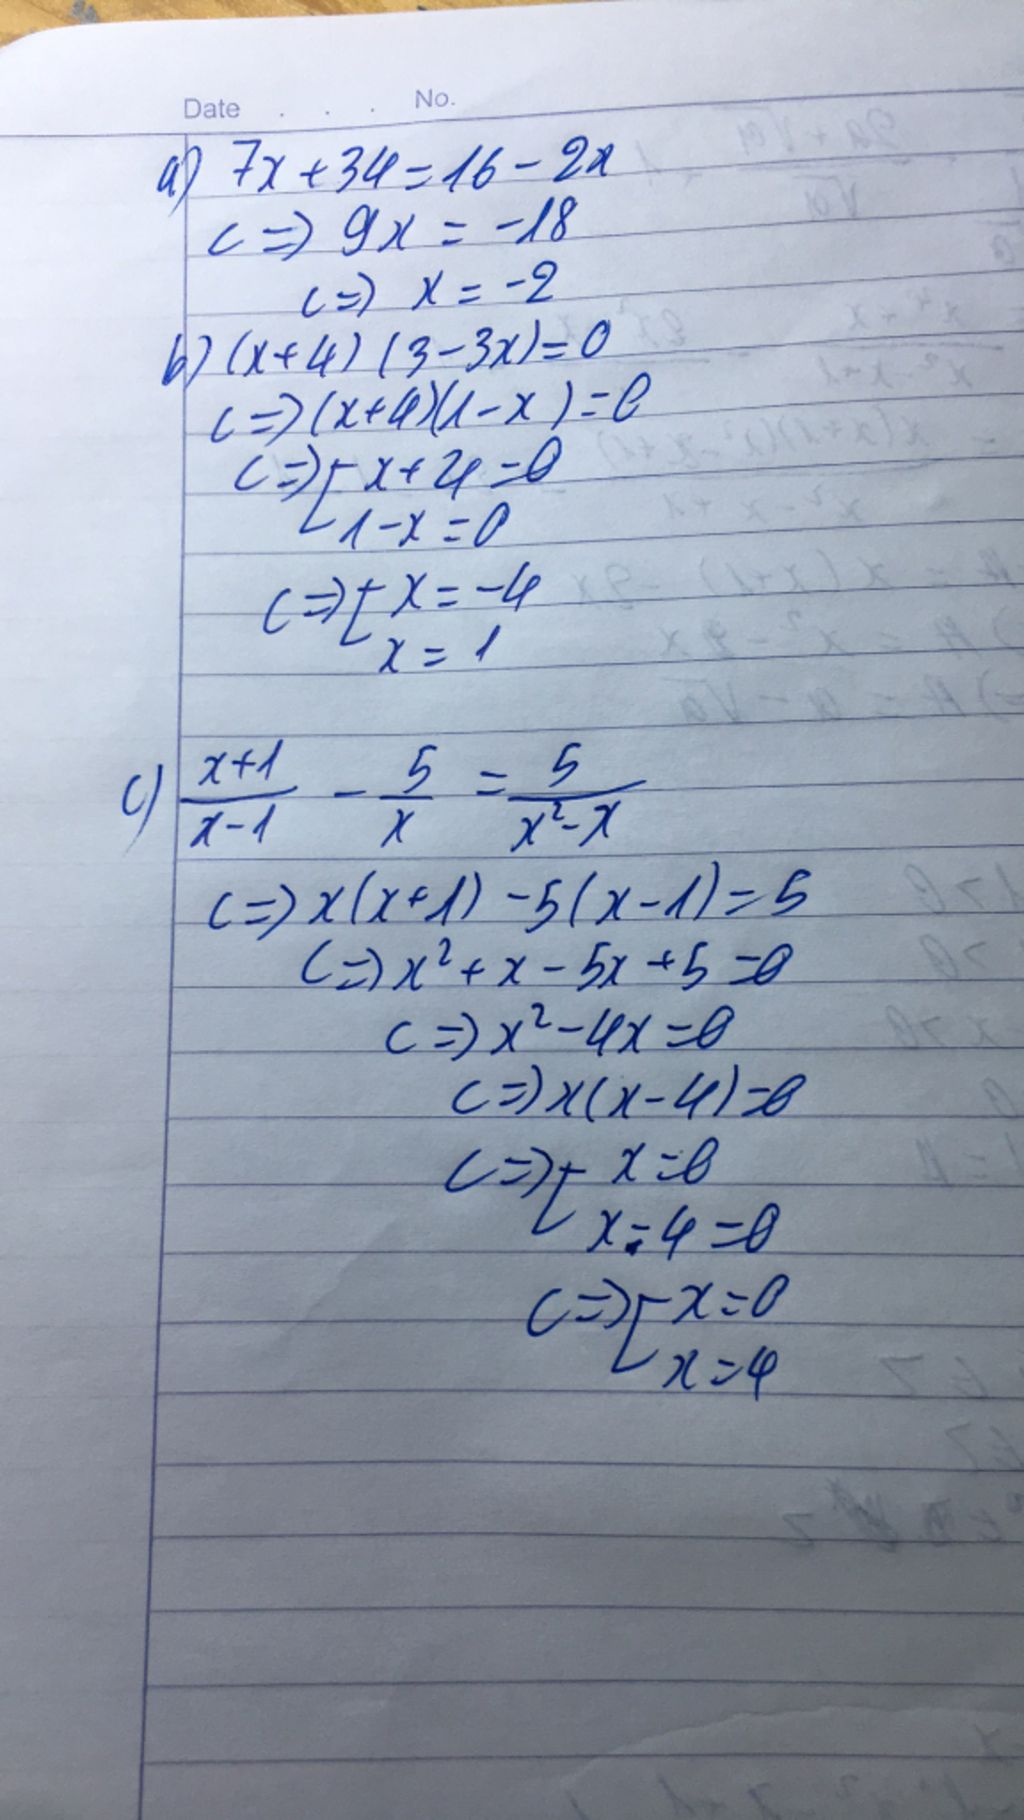 Date . . . No.
a) 7x + 34 = 16 - 2x
<=> 9x = -18
<=> x = -2
b) (x+4) (3-3x) = 0
<=> (x+4)(1-x) = 0
<=> [ x+4 = 0
1-x = 0
<=> [ x = -4
x = 1
c) \frac{x+1}{x-1} - \frac{5}{x} = \frac{5}{x²-x}
<=> x(x+1) - 5(x-1) = 5
<=> x² + x - 5x + 5 = 0
<=> x² - 4x = 0
<=> x(x-4) = 0
<=> [ x = 0
x - 4 = 0
<=> [ x = 0
x = 4